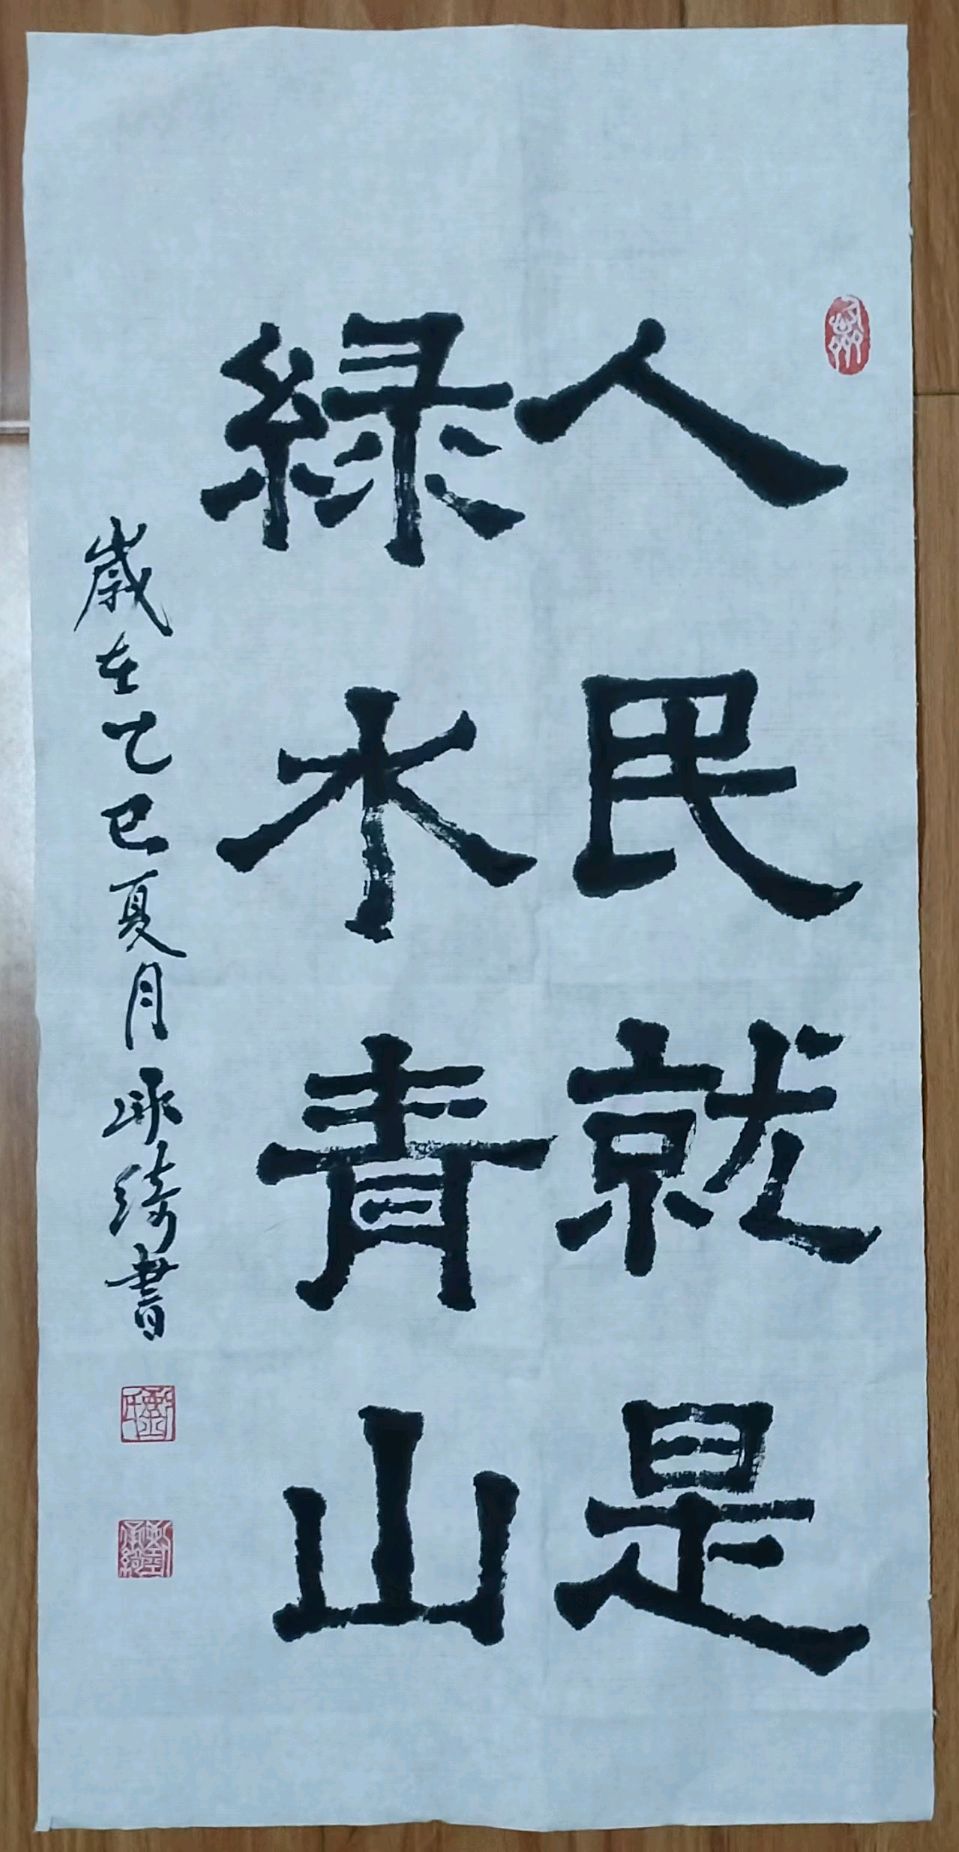 人民就是
綠水青山
歲在乙巳夏月承綺書